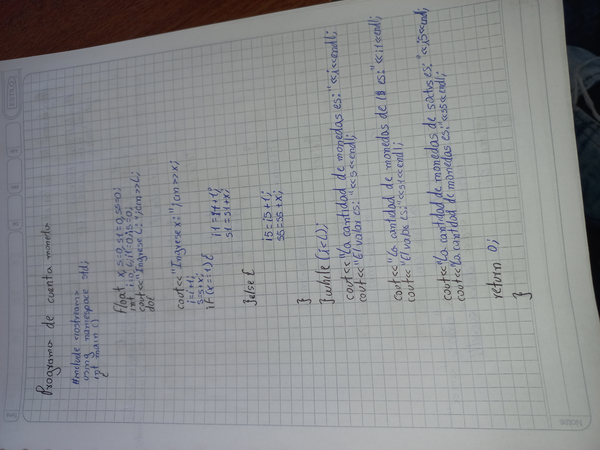 Programa de cuenta moneda
#include <iostream>
using namespace std;
int main ()
{
float x, s=0, s1=0, s5=0;
int i=0, L, i1=0, i5=0;
cout<<"Ingrese L:"; cin>>L;
do{
cout<<"Ingrese x:"; cin>>x;
i=i+1;
s=s+x;
if (x==1){
i1=i1+1;
s1=s1+x;
}else {
i5=i5+1;
s5=s5+x;
}
}while (i<L);
cout<<"La cantidad de monedas es:"<<i<<endl;
cout<<"El valor es:"<<s<<endl;
cout<<"La cantidad de monedas de 1 es:"<<i1<<endl;
cout<<"El valor es:"<<s1<<endl;
cout<<"La cantidad de monedas de es:"<<i5<<endl;
cout<<"La cantidad de monedas es:"<<s5<<endl;
return 0;
}